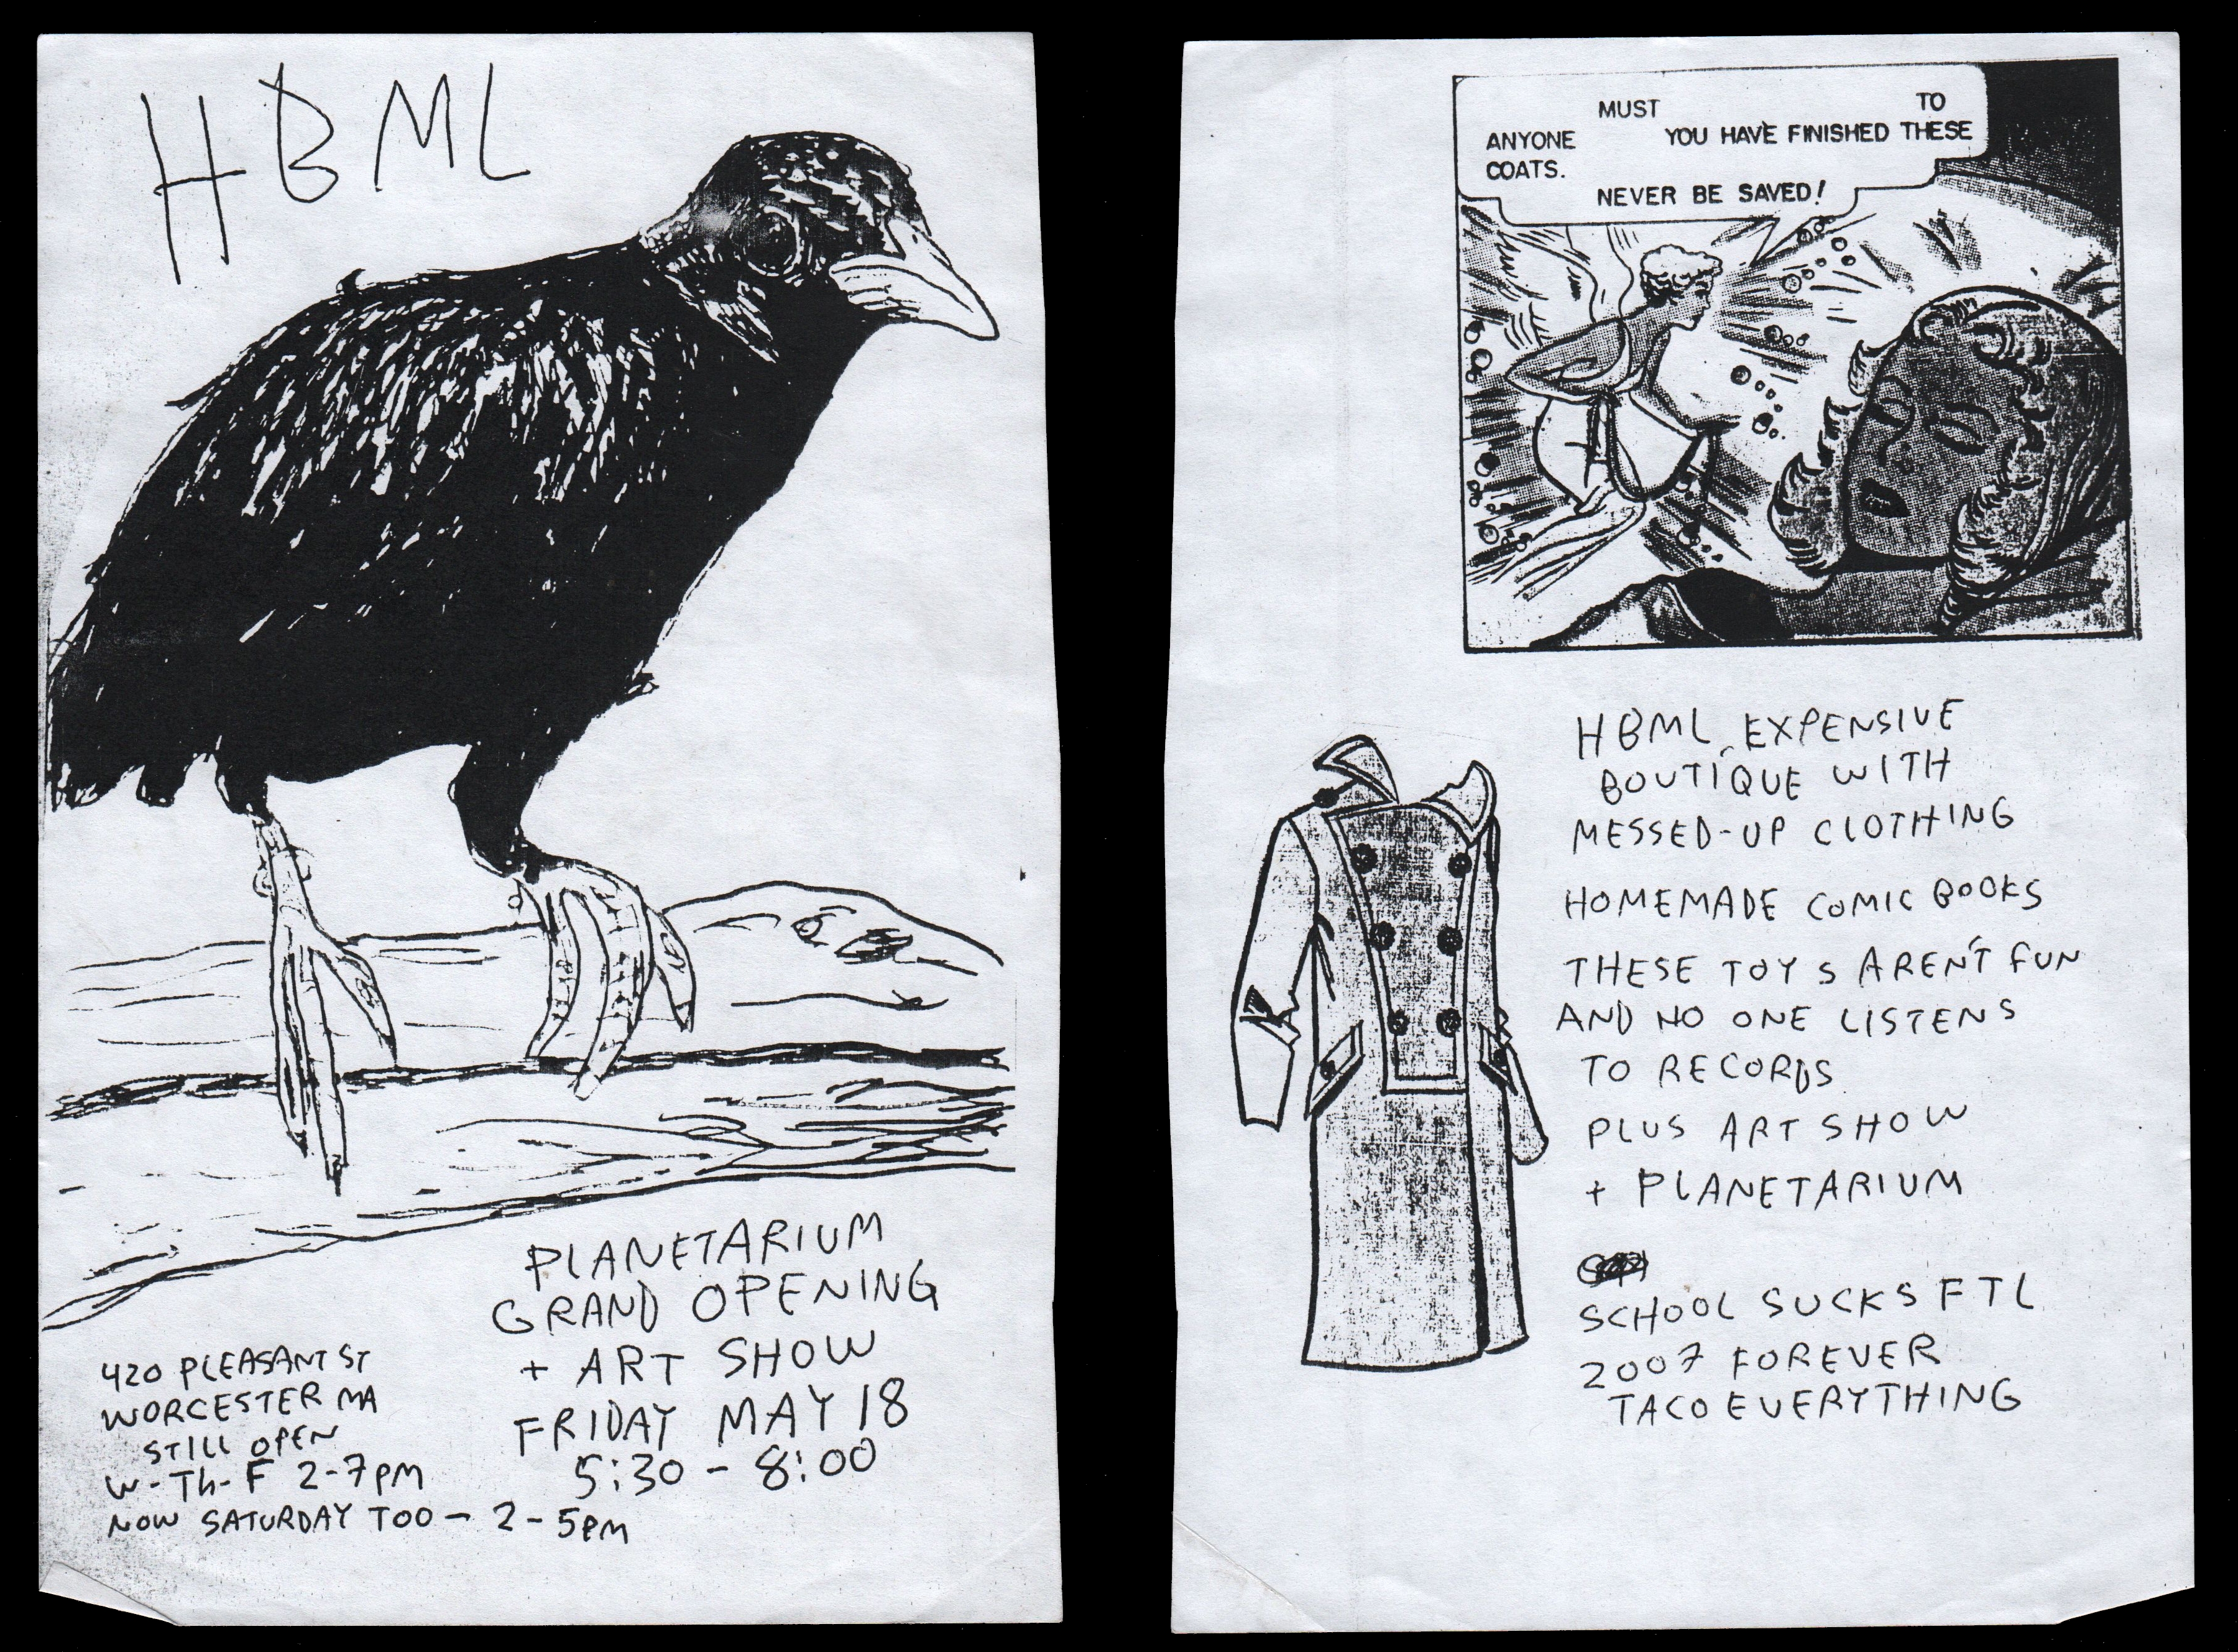 HBML
PLANETARIUM
GRAND OPENING
+ ART SHOW
FRIDAY MAY 18
5:30 - 8:00
420 PLEASANT ST
WORCESTER MA
STILL OPEN
W-Th-F 2-7PM
NOW SATURDAY TOO - 2-5PM
MUST TO
ANYONE YOU HAVE FINISHED THESE
COATS.
NEVER BE SAVED!
HBML, EXPENSIVE
BOUTIQUE WITH
MESSED-UP CLOTHING
HOMEMADE COMIC BOOKS
THESE TOYS AREN'T FUN
AND NO ONE LISTENS
TO RECORDS
PLUS ART SHOW
+ PLANETARIUM
SCHOOL SUCKS FTL
2007 FOREVER
TACO EVERYTHING